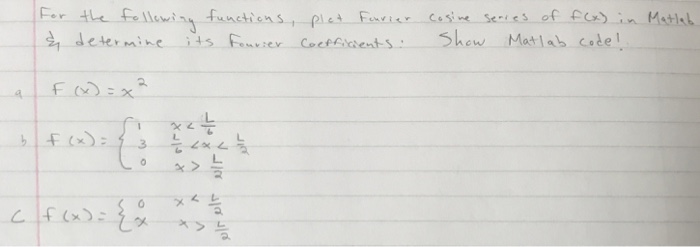 For the following functions, plot Fourier Cosine series of f(x) in Matlab
& determine its Fourier Coefficients: Show Matlab code!
a f(x) = x²
b f(x) = { 1 x < L/6
3 L/6 < x < L/2
0 x > L/2
c f(x) = { 0 x < L/2
x x > L/2